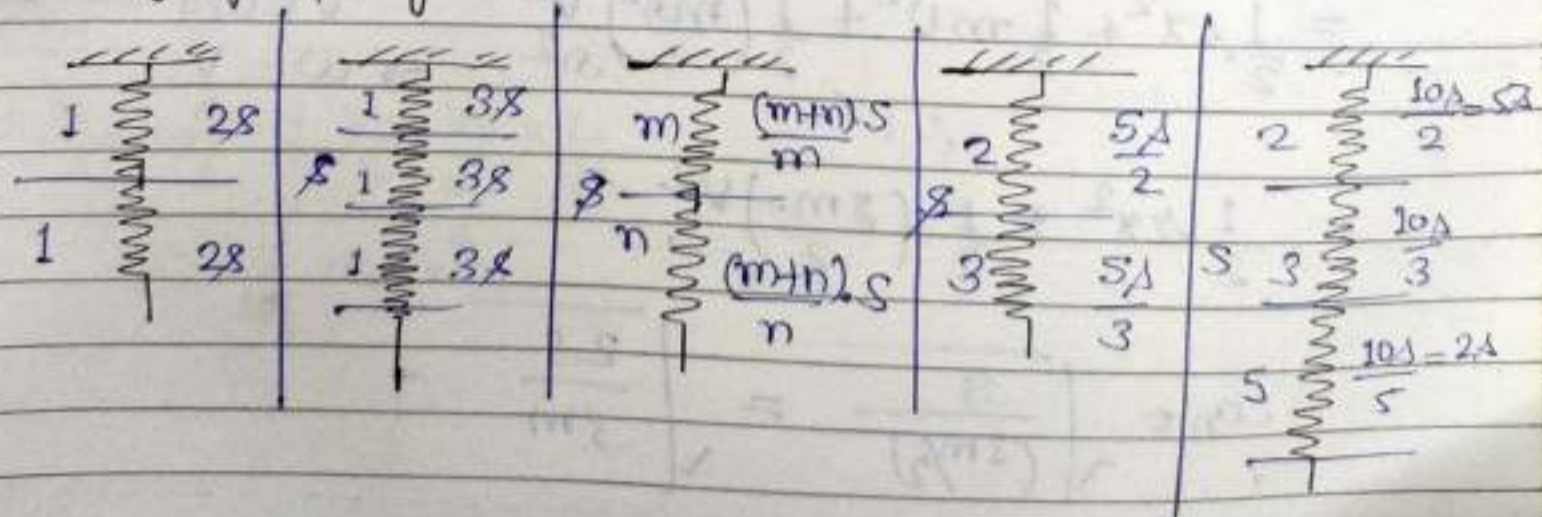 1 2s
1 2s
1 3s
s 1 3s
1 3s
m s(m+n)/m
s
n s(m+n)/n
2 5s/2
s
3 5s/3
2 10s/2 = 5s
s 3 10s/3
5 10s/5 = 2s